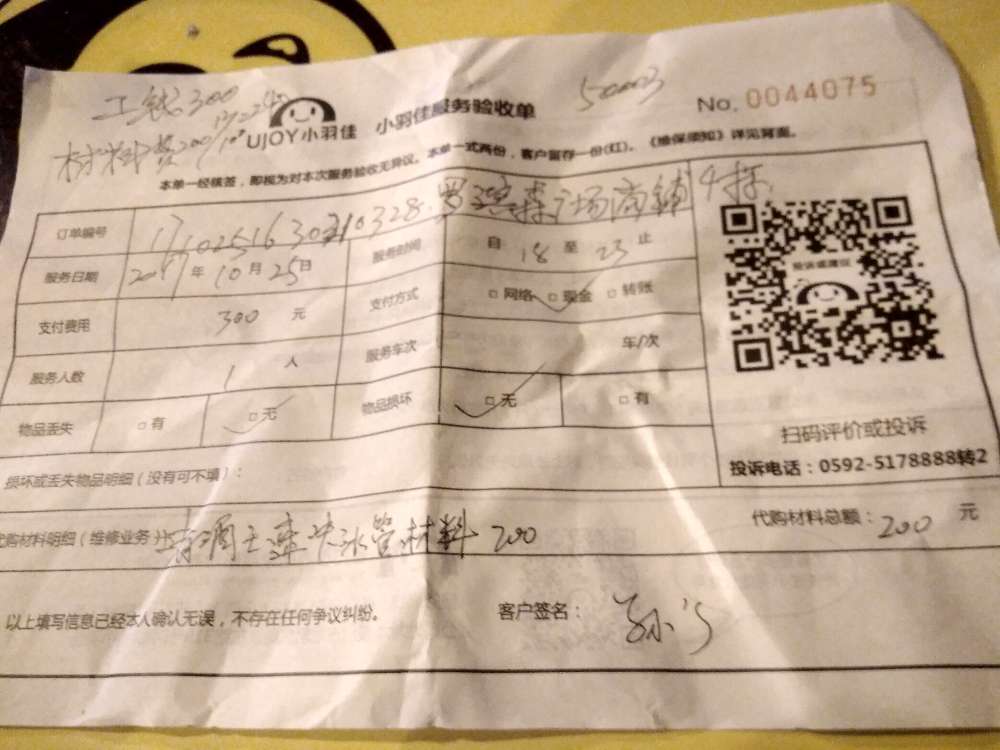 工钱300
材料费200
UJOY小羽佳 小羽佳服务验收单
No. 0044075
本单一经核签，即视为对本次服务验收无异议。本单一式两份，客户留存一份(红)。《维保须知》详见背面。
订单编号
服务日期 2017年10月25日 服务时间 自 18 至 23 止
支付费用 300 元 支付方式 □网络 □现金 □转账
服务人数 1 人 服务车次 车/次
物品丢失 □有 □无 物品损坏 □无 □有
投诉或建议
扫码评价或投诉
投诉电话：0592-5178888转2
损坏或丢失物品明细（没有可不填）：
代购材料明细（维修业务）： 水管材料 200
代购材料总额：200 元
以上填写信息已经本人确认无误，不存在任何争议纠纷。
客户签名：